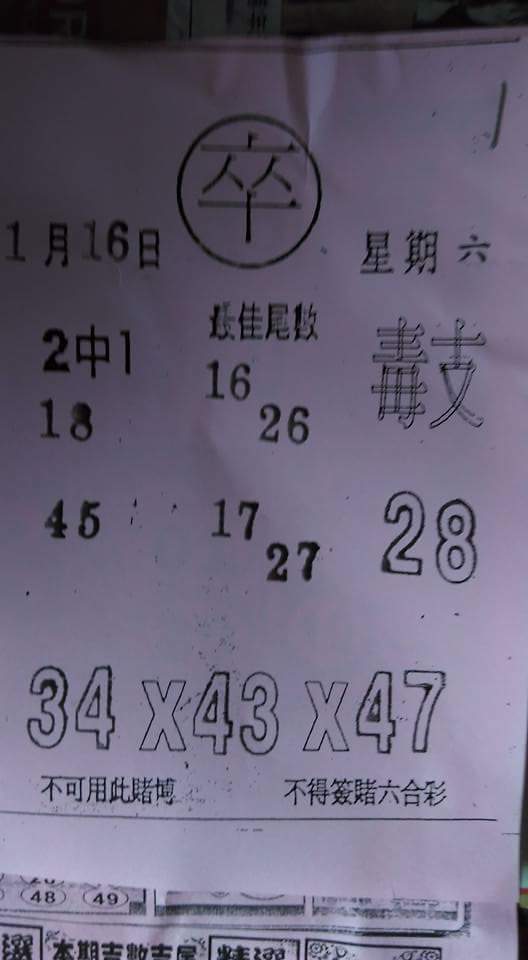 卒
1月16日
星期六
2中1
18
45
最佳尾數
16
26
17
27
28
34 X 43 X 47
不可用此賭博
不得簽賭六合彩
48 49
本期吉數吉尾
精選